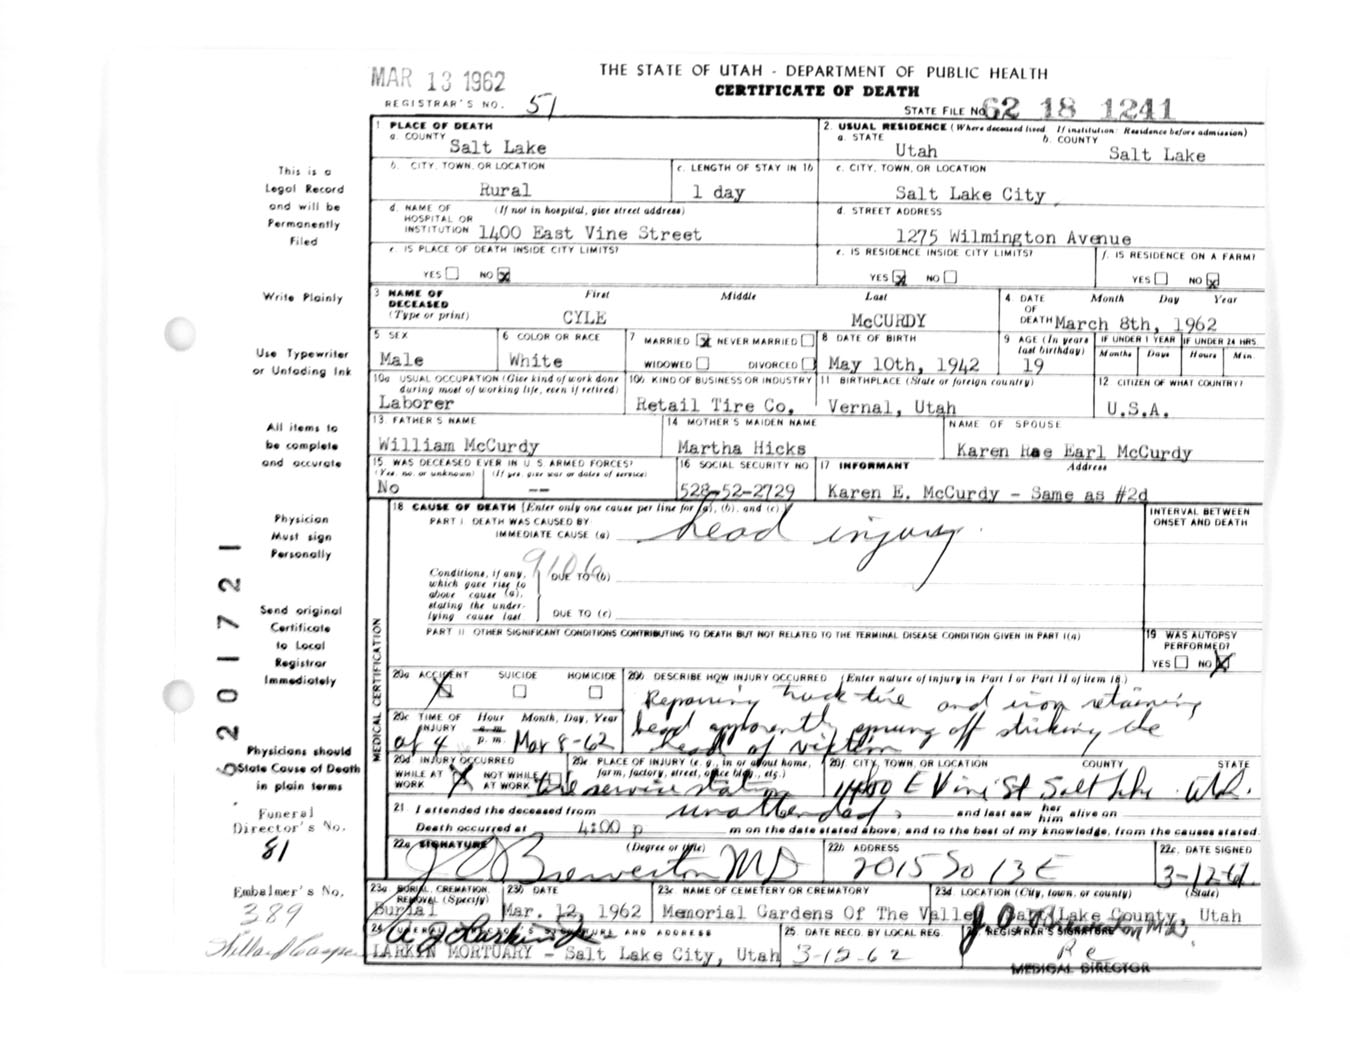 MAR 13 1962
THE STATE OF UTAH - DEPARTMENT OF PUBLIC HEALTH
CERTIFICATE OF DEATH
REGISTRAR'S NO. 51
STATE FILE NO. 62 18 1241
1 PLACE OF DEATH
a. COUNTY
Salt Lake
2. USUAL RESIDENCE (Where deceased lived. If institution: Residence before admission)
a. STATE b. COUNTY
Utah Salt Lake
b. CITY, TOWN, OR LOCATION
Rural
c. LENGTH OF STAY IN 1b
1 day
c. CITY, TOWN, OR LOCATION
Salt Lake City
d. NAME OF HOSPITAL OR INSTITUTION (If not in hospital, give street address)
1400 East Vine Street
d. STREET ADDRESS
1275 Wilmington Avenue
e. IS PLACE OF DEATH INSIDE CITY LIMITS?
YES NO X
e. IS RESIDENCE INSIDE CITY LIMITS?
YES X NO
f. IS RESIDENCE ON A FARM?
YES NO X
3 NAME OF DECEASED (Type or print)
First Middle Last
CYLE McCURDY
4 DATE OF DEATH Month Day Year
March 8th, 1962
5 SEX
Male
6 COLOR OR RACE
White
7 MARRIED X NEVER MARRIED
WIDOWED DIVORCED
8 DATE OF BIRTH
May 10th, 1942
9 AGE (In years last birthday)
19
IF UNDER 1 YEAR IF UNDER 24 HRS.
Months Days Hours Min.
10a USUAL OCCUPATION (Give kind of work done during most of working life, even if retired)
Laborer
10b KIND OF BUSINESS OR INDUSTRY
Retail Tire Co.
11 BIRTHPLACE (State or foreign country)
Vernal, Utah
12 CITIZEN OF WHAT COUNTRY?
U.S.A.
13. FATHER'S NAME
William McCurdy
14 MOTHER'S MAIDEN NAME
Martha Hicks
NAME OF SPOUSE
Karen Rae Earl McCurdy
15 WAS DECEASED EVER IN U S ARMED FORCES?
(Yes, no, or unknown) (If yes, give war or dates of service)
No --
16 SOCIAL SECURITY NO
528-52-2729
17 INFORMANT Address
Karen E. McCurdy - Same as #2d
18 CAUSE OF DEATH [Enter only one cause per line for (a), (b), and (c)]
PART I. DEATH WAS CAUSED BY
IMMEDIATE CAUSE (a) head injury
INTERVAL BETWEEN ONSET AND DEATH
Conditions, if any, which gave rise to above cause (a), stating the underlying cause last
DUE TO (b)
DUE TO (c)
PART II OTHER SIGNIFICANT CONDITIONS CONTRIBUTING TO DEATH BUT NOT RELATED TO THE TERMINAL DISEASE CONDITION GIVEN IN PART I(a)
19 WAS AUTOPSY PERFORMED?
YES NO X
MEDICAL CERTIFICATION
20a ACCIDENT X SUICIDE HOMICIDE
20b DESCRIBE HOW INJURY OCCURRED (Enter nature of injury in Part I or Part II of item 18.)
Repairing truck tire and iron retaining
bead apparently sprung off striking the
head of victim
20c TIME OF INJURY Hour Month, Day, Year
a.m.
p.m.
at 4 Mar 8-62
20d INJURY OCCURRED
WHILE AT WORK X NOT WHILE AT WORK
20e PLACE OF INJURY (e.g., in or about home, farm, factory, street, office bldg., etc.)
tire service station
20f CITY, TOWN, OR LOCATION COUNTY STATE
1400 E Vine St Salt Lake
21 I attended the deceased from unattended, and last saw her him alive on
Death occurred at 4:00 p m on the date stated above; and to the best of my knowledge, from the causes stated.
22a SIGNATURE (Degree or title)
J O Brewerton MD
22b ADDRESS
2015 So 13 E
22c. DATE SIGNED
3-12-62
23a BURIAL, CREMATION, REMOVAL (Specify)
Burial
23b DATE
Mar. 12, 1962
23c NAME OF CEMETERY OR CREMATORY
Memorial Gardens Of The Valley
23d LOCATION (City, town, or county) (State)
Salt Lake County, Utah
24 FUNERAL DIRECTOR'S SIGNATURE AND ADDRESS
LARKIN MORTUARY - Salt Lake City, Utah
25. DATE RECD. BY LOCAL REG.
REGISTRAR'S SIGNATURE
MEDICAL DIRECTOR
This is a
Legal Record
and will be
Permanently
Filed
Write Plainly
Use Typewriter
or Unfading Ink
All items to
be complete
and accurate
Physician
Must sign
Personally
Send original
Certificate
to Local
Registrar
Immediately
Physicians should
State Cause of Death
in plain terms
Funeral
Director's No.
81
Embalmer's No.
389
6201721